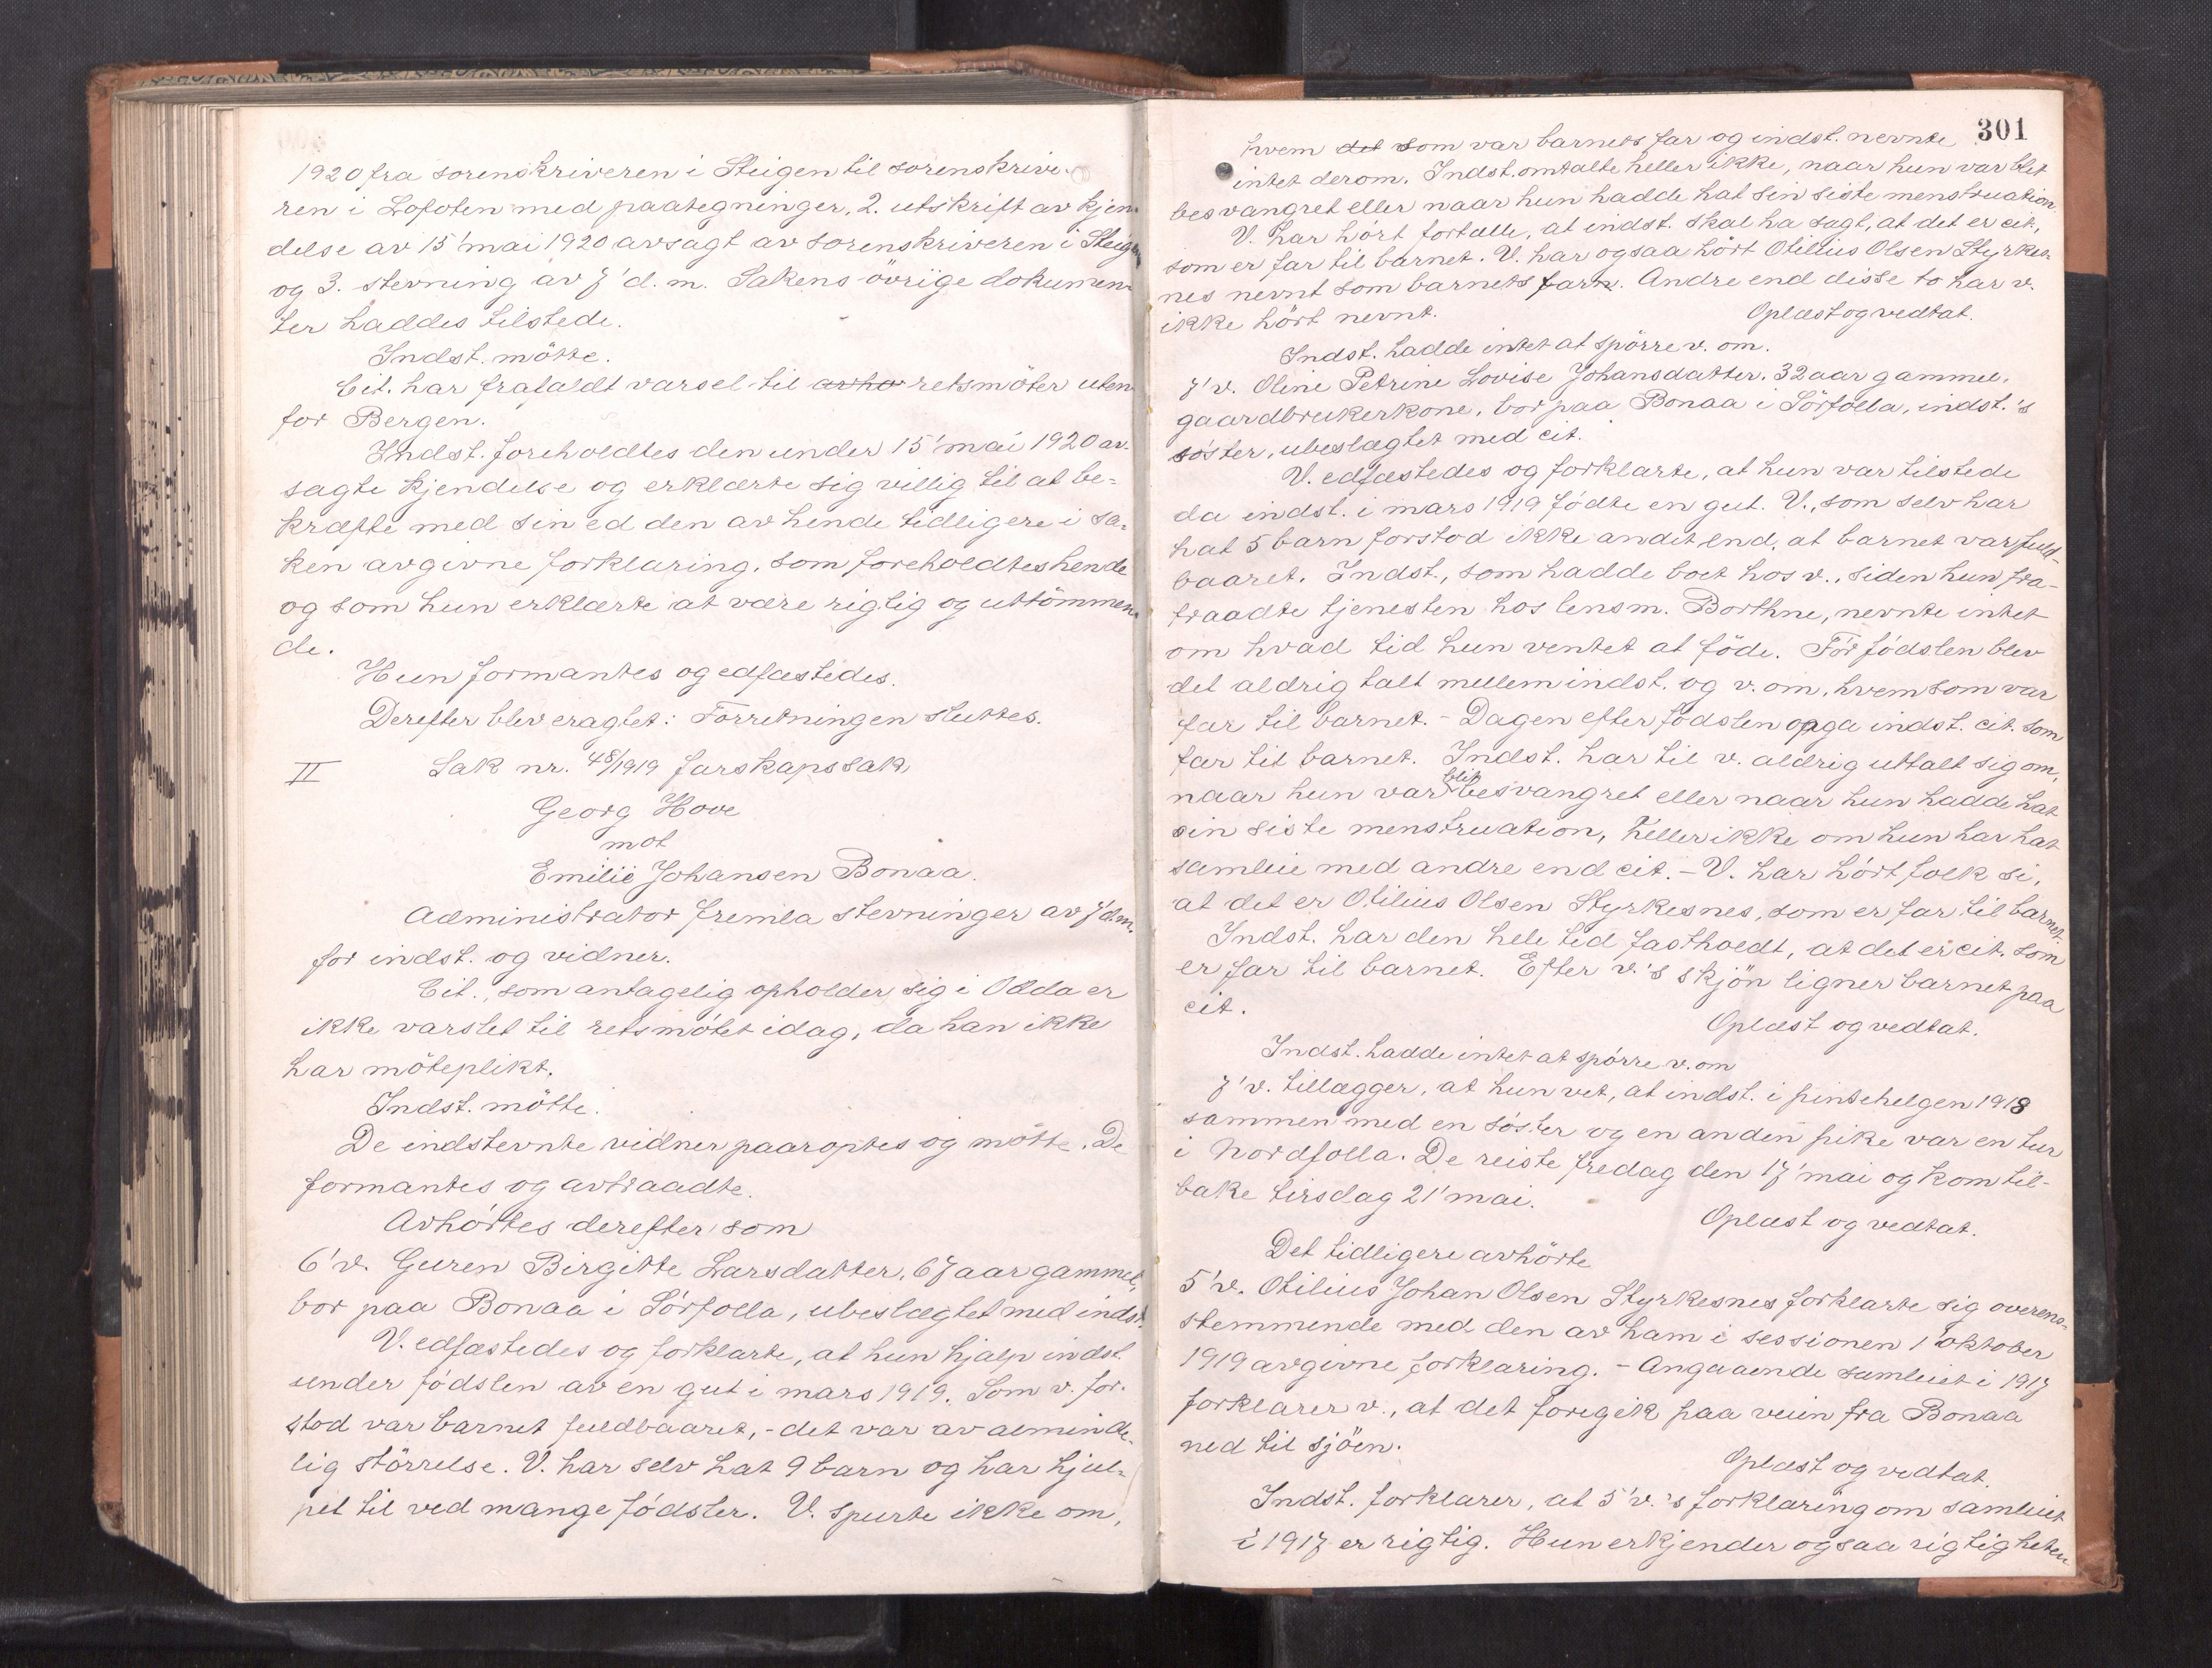 1920 fra sorenskriveren i Steigen til sorenskrive-
ren i Lofoten med paategninger, 2. utskrift av kjen-
delse av 15' mai 1920 avsagt av sorenskriveren i Steigen
og 3. stevning av 7' d. m. Sakens övrige dokumen-
ter haddes tilstede.
Indst. mötte.
Cit. har frafaldt varsel til avhø retsmöter uten-
for Bergen.
Indst. foreholdtes den under 15' mai 1920 av-
sagte kjendelse og erklærte sig villig til at be-
kræfte med sin ed den av hende tidligere i sa-
ken avgivne forklaring, som foreholdtes hende
og som hun erklærte at være rigtig og uttömmen-
de.
Hun formantes og edfæstedes.
Derefter blev eragtet: Forretningen sluttes.
II Sak nr. 48/1919 farskapssak
Georg Hove
mot
Emilie Johansen Bonaa.
Administrator fremla stevninger av 7' d.m.
for indst. og vidner.
Cit., som antagelig opholder sig i Odda er
ikke varslet til retsmötet idag, da han ikke
har möteplikt.
Indst. mötte.
De indstevnte vidner paaroptes og mötte. De
formantes og avtraadte.
Avhörtes derefter som
6' v. Guren Birgitte Larsdatter, 67 aar gammel,
bor paa Bonaa i Sörfolla, ubeslægtet med indst.
V. edfæstedes og forklarte, at hun hjalp indst.
under födslen av en gut i mars 1919. Som v. for-
stod var barnet fuldbaaret, - det var av alminde-
lig störrelse. V. har selv hat 9 barn og har hjul-
pet til ved mange födsler. V. spurte ikke om,
301
hvem det som var barnets far og indst. nevnte
intet derom. Indst. omtalte heller ikke, naar hun var blet
besvangret eller naar hun hadde hat sin siste menstruation.
V. har hört fortælle, at indst. skal ha sagt, at det er cit.,
som er far til barnet. V. har ogsaa hört Otilius Olsen Styrkes-
nes nevnt som barnets far. Andre end disse to har v.
ikke hört nevnt.
Oplæst og vedtat.
Indst. hadde intet at spörre v. om.
7' v. Oline Petrine Lovise Johansdatter, 32 aar gammel,
gaardbrukerkone, bor paa Bonaa i Sörfolla, indst.'s
söster, ubeslægtet med cit.
V. edfæstedes og forklarte, at hun var tilstede
da indst. i mars 1919 födte en gut. V., som selv har
hat 5 barn forstod ikke andet end, at barnet var fuld-
baaret. Indst., som hadde boet hos v., siden hun fra-
traadte tjenesten hos lensm. Borthne, nevnte intet
om hvad tid hun ventet at föde. För födslen blev
det aldrig talt mellem indst. og v. om, hvem som var
far til barnet. - Dagen efter födslen opga indst. cit. som
far til barnet. Indst. har til v. aldrig uttalt sig om,
naar hun var blit besvangret eller naar hun hadde hat
sin siste menstruation, heller ikke om hun har hat
samleie med andre end cit. - V. har hört folk si,
at det er Otilius Olsen Styrkesnes, som er far til barnet.
Indst. har den hele tid fastholdt, at det er cit. som
er far til barnet. Efter v.'s skjön ligner barnet paa
cit.
Oplæst og vedtat.
Indst. hadde intet at spörre v. om
7' v. tillægger, at hun vet, at indst. i pinsehelgen 1918
sammen med en söster og en anden pike var en tur
i Nordfolla. De reiste fredag den 17' mai og kom til-
bake tirsdag 21' mai.
Oplæst og vedtat.
Det tidligere avhörte
5' v. Otilius Johan Olsen Styrkesnes forklarte sig overens-
stemmende med den av ham i sessionen 1' oktober
1919 avgivne forklaring. - Angaaende samleiet i 1917
forklarer v., at det foregik paa veien fra Bonaa
ned til sjöen.
Oplæst og vedtat.
Indst. forklarer, at 5' v.'s forklaring om samleiet
i 1917 er rigtig. Hun erkjender ogsaa rigtigheten